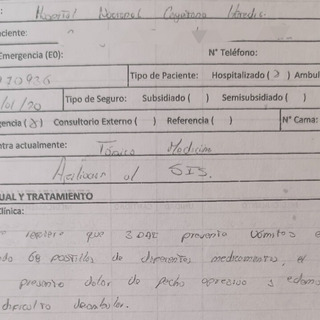 : Hospital Nacional Cayetano Heredia
ciente:
Emergencia (EO): N° Teléfono:
Tipo de Paciente: Hospitalizado ( ) Ambul
/20 Tipo de Seguro: Subsidiado ( ) Semisubsidiado ( )
gencia (X) Consultorio Externo ( ) Referencia ( ) N° Cama:
ntra actualmente: Tópico Medicina
al SIS.
UAL Y TRATAMIENTO
línica:
que presento vómitos
68 pastillas de diferentes medicamentos, el
presento dolor de pecho opresivo y edema
dificulta deambular.